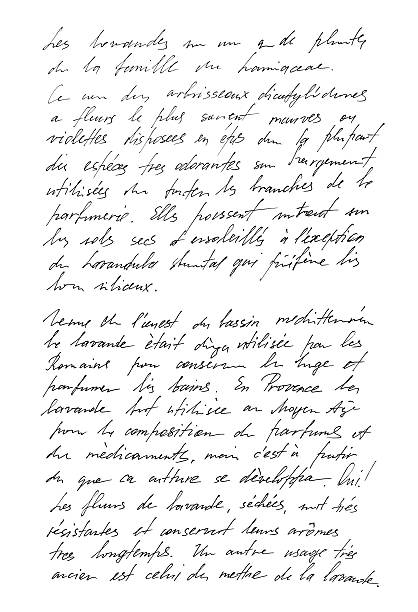 Les lavandes un de plantes
de la famille du Lamiaceae.
Ce des arbrisseaux dicotylédones
a fleurs le plus souvent mauves ou
violettes disposées en épis la plupart
des espèces très odorantes son largement
utilisées les branches de la
parfumerie. Elles poussent sur
les sols secs et ensoleillés à l'exception
du Lavandula qui préfère les
siliceux.
de l'ouest du bassin
la lavande était utilisée par les
Romains pour conserver le linge et
parfumer les bains. En Provence la
lavande fut utilisée au Moyen Age
pour la composition de parfums et
de médicaments, mais c'est à
du que sa culture se développa.
Les fleurs de lavande, séchées, sont très
résistantes et conservent leurs arômes
très longtemps. Un autre usage très
ancien est celui de mettre de la lavande